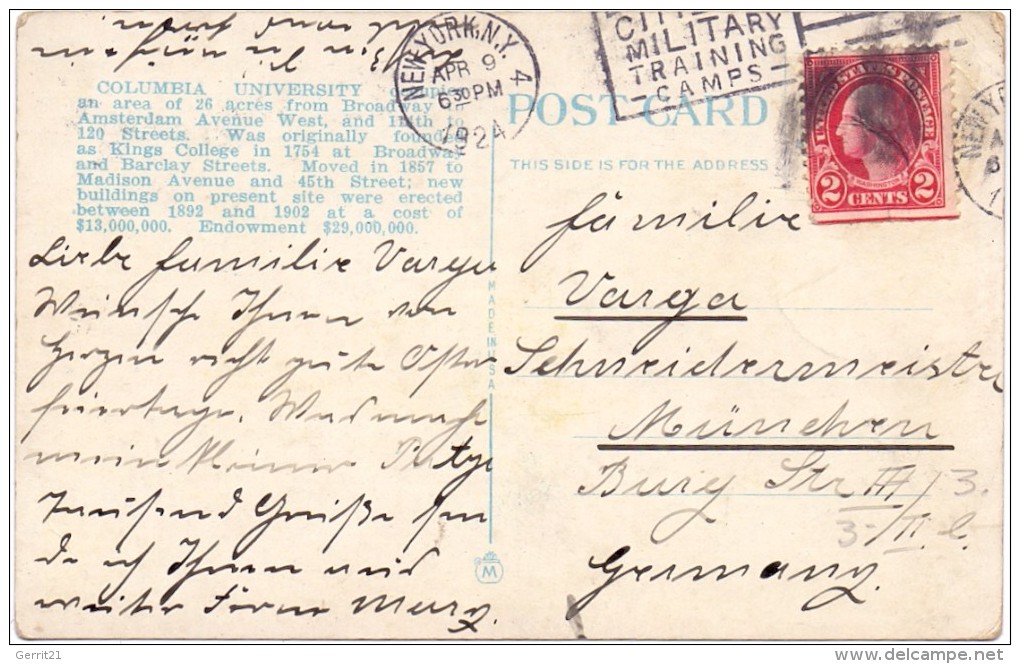 NEW YORK, N.Y. 4
APR 9
6 30 PM
1924
MILITARY
TRAINING
CAMPS
UNITED STATES POSTAGE
WASHINGTON
2 CENTS 2
COLUMBIA UNIVERSITY
an area of 26 acres from Broadway
Amsterdam Avenue West, and to
120 Streets. Was originally founded
as Kings College in 1754 at Broadway
and Barclay Streets. Moved in 1857 to
Madison Avenue and 45th Street; new
buildings on present site were erected
between 1892 and 1902 at a cost of
$13,000,000. Endowment $29,000,000.
POST CARD
THIS SIDE IS FOR THE ADDRESS
MADE IN USA
Liebe Familie Varga
Wünsche Ihnen von
Herzen recht gute Oster
feiertage. Was macht
mein kleiner
Tausend Grüße
Ihnen und
M
Familie
Varga
Schneidermeister
München
Burg Str III / 3.
3
Germany.
Gerrit21
delcampe.net